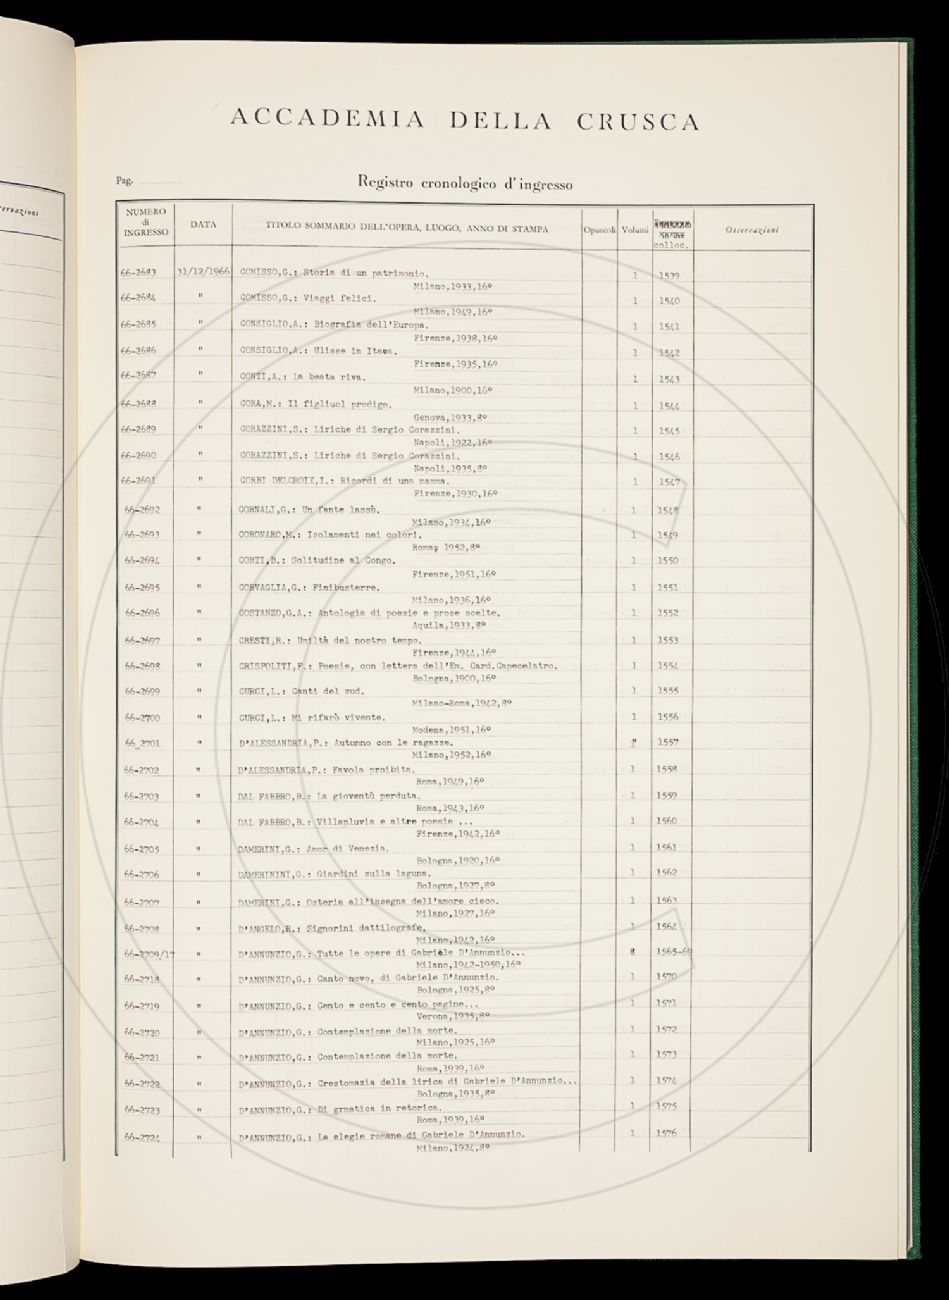 ervazioni
ACCADEMIA DELLA CRUSCA
Pag.
Registro cronologico d'ingresso
NUMERO di INGRESSO DATA TITOLO SOMMARIO DELL'OPERA, LUOGO, ANNO DI STAMPA Opuscoli Volumi colloc. Osservazioni
66-2683 31/12/1966 COMISSO,G.: Storia di un patrimonio. 1 1539
Milano,1933,16º
66-2684 " COMISSO,G.: Viaggi felici. 1 1540
Milano,1949,16º
66-2685 " CONSIGLIO,A.: Biografia dell'Europa. 1 1541
Firenze,1938,16º
66-2686 " CONSIGLIO,A.: Ulisse in Itaca. 1 1542
Firenze,1935,16º
66-2687 " CONTI,A.: La beata riva. 1 1543
Milano,1900,16º
66-2688 " CORA,M.: Il figliuol prodigo. 1 1544
Genova,1933,8º
66-2689 " CORAZZINI,S.: Liriche di Sergio Corazzini. 1 1545
Napoli,1922,16º
66-2690 " CORAZZINI,S.: Liriche di Sergio Corazzini. 1 1546
Napoli,1935,8º
66-2691 " CORBI DELCROIX,I.: Ricordi di una mamma. 1 1547
Firenze,1930,16º
66-2692 " CORNALI,G.: Un fante lassù. 1 1548
Milano,1934,16º
66-2693 " CORONARO,M.: Isolamenti nei colori. 1 1549
Roma, 1952,8º
66-2694 " CORTI,B.: Solitudine al Congo. 1 1550
Firenze,1951,16º
66-2695 " CORVAGLIA,G.: Finibusterre. 1 1551
Milano,1936,16º
66-2696 " COSTANZO,G.A.: Antologia di poesie e prose scelte. 1 1552
Aquila,1933,8º
66-2697 " CRESTI,R.: Umiltà del nostro tempo. 1 1553
Firenze,1944,16º
66-2698 " CRISPOLITI,F.: Poesie, con lettera dell'Em. Card.Capecelatro. 1 1554
Bologna,1900,16º
66-2699 " CURCI,L.: Canti del sud. 1 1555
Milano-Roma,1942,8º
66-2700 " CURCI,L.: Mi rifarò vivente. 1 1556
Modena,1951,16º
66_2701 " D'ALESSANDRIA,P.: Autunno con le ragazze. 1557
Milano,1952,16º
66-2702 " D'ALESSANDRIA,P.: Favola proibita. 1 1558
Roma,1949,16º
66-2703 " DAL FABBRO,B.: La gioventù perduta. 1 1559
Roma,1943,16º
66-2704 " DAL FABBRO,B.: Villapluvia e altre poesie ... 1 1560
Firenze,1942,16º
66-2705 " DAMERINI,G.: Amor di Venezia. 1 1561
Bologna,1920,16º
66-2706 " DAMERININI,G.: Giardini sulla laguna. 1 1562
Bologna,1927,8º
66-2707 " DAMERINI,G.: Osteria all'insegna dell'amore cieco. 1 1563
Milano,1927,16º
66-2708 " D'ANGELO,R.: Signorini dattilografe. 1 1564
Milano,1942,16º
66-2709/17 " D'ANNUNZIO,G.: Tutte le opere di Gabriele D'Annunzio... 8 1565-69
Milano,1942-1950,16º
66-2718 " D'ANNUNZIO,G.: Canto novo, di Gabriele D'Annunzio. 1 1570
Bologna,1925,8º
66-2719 " D'ANNUNZIO,G.: Cento e cento e cento pagine... 1 1571
Verona,1935,8º
66-2720 " D'ANNUNZIO,G.: Contemplazione della morte. 1 1572
Milano,1925,16º
66-2721 " D'ANNUNZIO,G.: Contemplazione della morte. 1 1573
Roma,1939,16º
66-2722 " D'ANNUNZIO,G.: Crestomazia della lirica di Gabriele D'Annunzio... 1 1574
Bologna,1935,8º
66-2723 " D'ANNUNZIO,G.: Di grmatica in retorica. 1 1575
Roma,1939,16º
66-2724 " D'ANNUNZIO,G.: Le elegie romane di Gabriele D'Annunzio. 1 1576
Milano,1924,8º